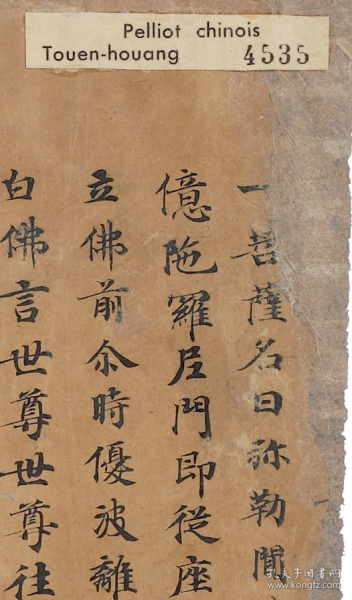 Pelliot chinois
Touen-houang 4535
一菩薩名曰弥勒聞
億陁羅尼門即從座
立佛前尒時優波離
白佛言世尊世尊往
孔夫子旧书网
www.kongfz.com